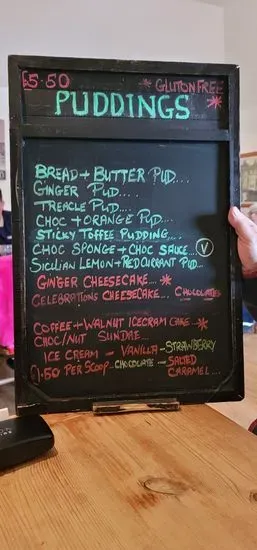 £5.50 * GLUTEN FREE
PUDDINGS *
BREAD + BUTTER PUD...
GINGER PUD....
TREACLE PUD....
CHOC + ORANGE PUD...
STICKY TOFFEE PUDDING...
CHOC SPONGE + CHOC SAUCE... V
SICILIAN LEMON + REDCURRANT PUD...
GINGER CHEESECAKE.... *
CELEBRATIONS CHEESECAKE... CHOCOLATES
COFFEE + WALNUT ICECREAM CAKE... *
CHOC/NUT SUNDAE...
ICE CREAM - VANILLA - STRAWBERRY
£1.50 PER SCOOP... CHOCOLATE - SALTED
CARAMEL...